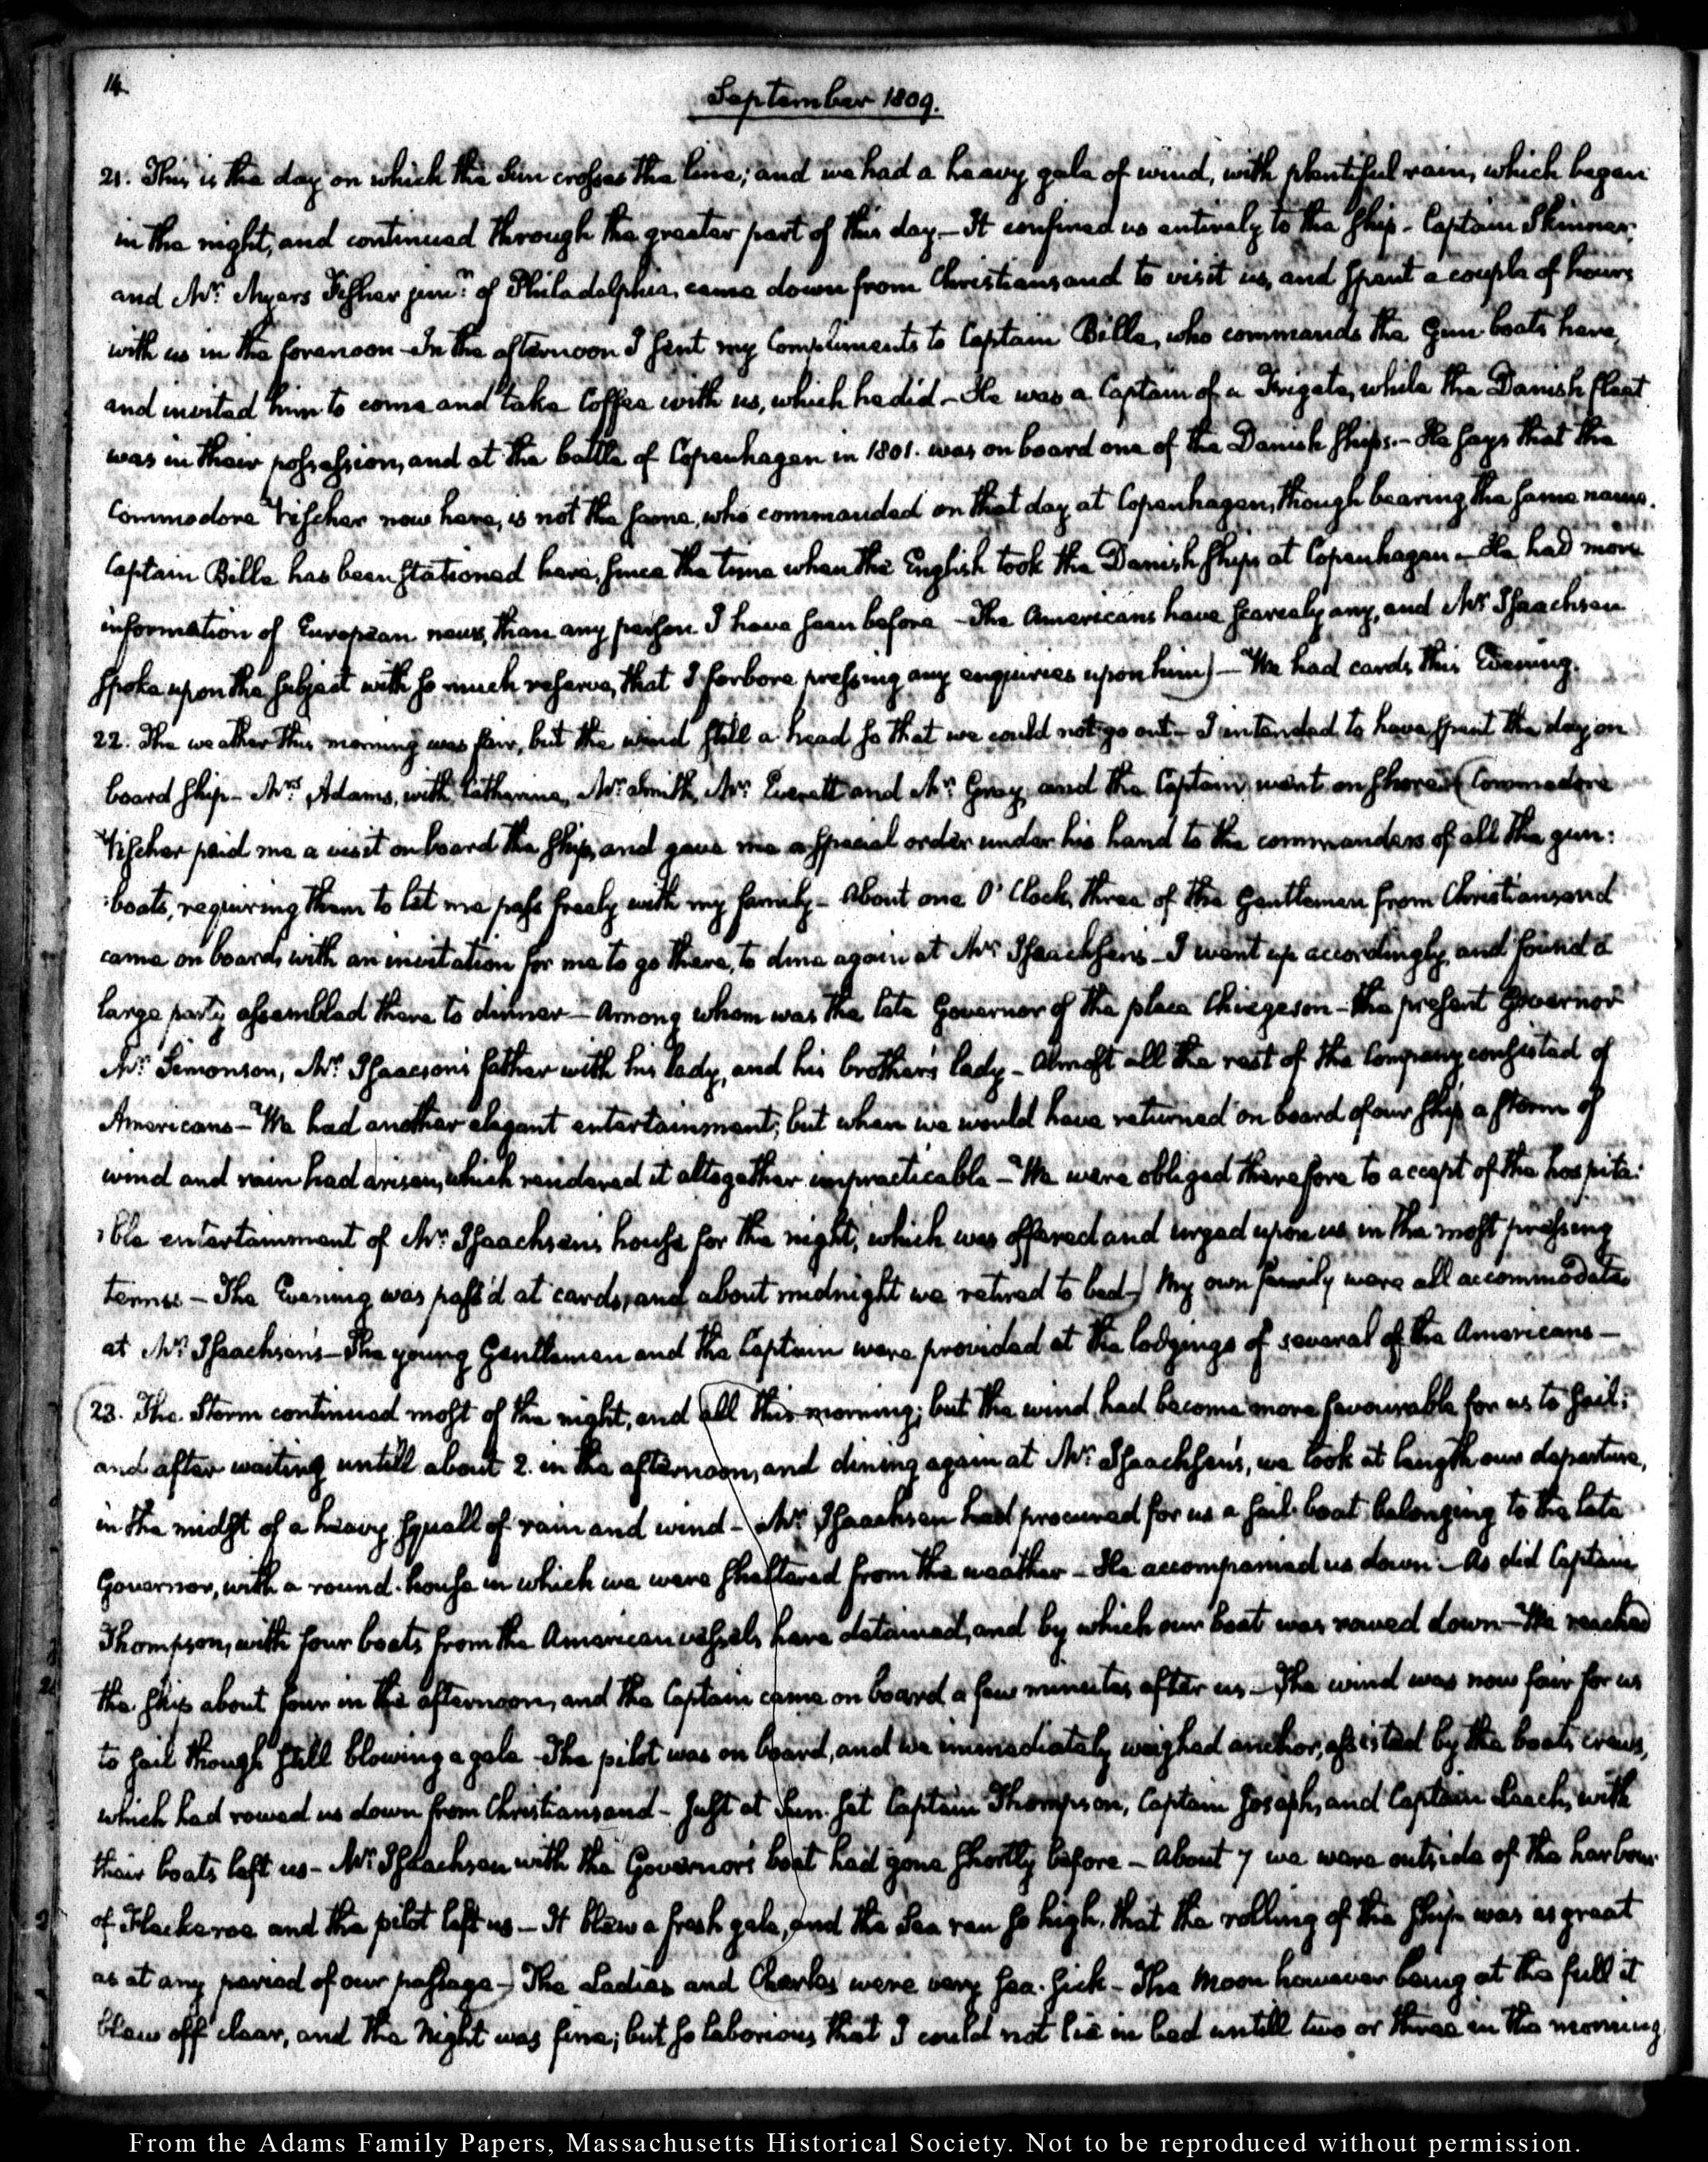 14
September 1809.
21. This is the day on which the Sun crosses the line; and we had a heavy gale of wind, with plentiful rain, which began
in the night, and continued through the greater part of this day — It confined us entirely to the ship — Captain Skinner,
and Mr. Myers Fisher junr. of Philadelphia, came down from Christiansand to visit us, and spent a couple of hours
with us in the forenoon — In the afternoon I sent my Compliments to Captain Bille, who commands the Gun-boats here,
and invited him to come and take Coffee with us, which he did — He was a Captain of a Frigate, while the Danish fleet
was in their possession, and at the battle of Copenhagen in 1801. was on board one of the Danish ships. — He says that the
Commodore Fischer now here, is not the same, who commanded on that day at Copenhagen, though bearing the same name.
Captain Bille has been stationed here, since the time when the English took the Danish ships at Copenhagen — He had more
information of European news, than any person I have seen before — The Americans have scarcely any, and Mr. Isaachsen
spoke upon the subject with so much reserve, that I forbore pressing any enquiries upon him) — We had cards this Evening.
22. The weather this morning was fair, but the wind still a head so that we could not go out — I intended to have spent the day on
board ship — Mrs. Adams, with Catherine, Mr. Smith, Mr. Everett and Mr. Gray, and the Captain went on shore (Commodore
Fischer paid me a visit on board the ship, and gave me a special order under his hand to the commanders of all the gun:
:boats, requiring them to let me pass freely with my family — About one O'Clock, three of the Gentlemen from Christiansand
came on board, with an invitation for me to go there, to dine again at Mr. Isaachsen's — I went up accordingly, and found a
large party assembled there to dinner — Among whom was the late Governor of the place — the present Governor
Mr. Simonson, Mr. Isaacson's father with his lady, and his brother's lady — Almost all the rest of the Company consisted of
Americans — We had another elegant entertainment; but when we would have returned on board of our ship a storm of
wind and rain had arisen, which rendered it altogether impracticable — We were obliged therefore to accept of the hospita:
:ble entertainment of Mr. Isaachsen's house for the night, which was offered and urged upon us in the most pressing
terms — The Evening was pass'd at cards, and about midnight we retired to bed) My own family were all accommodated
at Mr. Isaachsen's — The young Gentlemen and the Captain were provided at the lodgings of several of the Americans —
(23. The Storm continued most of the night, and all this morning; but the wind had become more favourable for us to sail;
and after waiting untill about 2. in the afternoon, and dining again at Mr. Isaachsen's, we took at length our departure,
in the midst of a heavy squall of rain and wind — Mr. Isaachsen had procured for us a sail-boat belonging to the late
Governor, with a round-house in which we were sheltered from the weather — He accompanied us down — As did Captain
Thompson, with four boats from the American vessels here detained, and by which our boat was rowed down — We reached
the ship about four in the afternoon, and the Captain came on board a few minutes after us — The wind was now fair for us
to sail though still blowing a gale — The pilot was on board, and we immediately weighed anchor, assisted by the boats crews,
which had rowed us down from Christiansand — Just at Sun-set Captain Thompson, Captain Joseph, and Captain Leach, with
their boats left us — Mr. Isaachsen with the Governor's boat had gone shortly before — About 7 we were outside of the harbour
of Fleckeroe and the pilot left us — It blew a fresh gale, and the Sea ran so high, that the rolling of the ship was as great
as at any period of our passage —) The Ladies and Charles were very sea-sick — The Moon however being at the full it
blew off clear, and the Night was fine; but so laborious that I could not lie in bed untill two or three in the morning
From the Adams Family Papers, Massachusetts Historical Society. Not to be reproduced without permission.